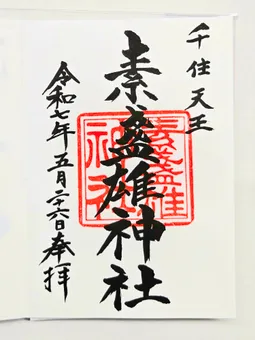 千住天王
素盞雄神社
令和七年五月二十六日奉拝
素盞雄
神社